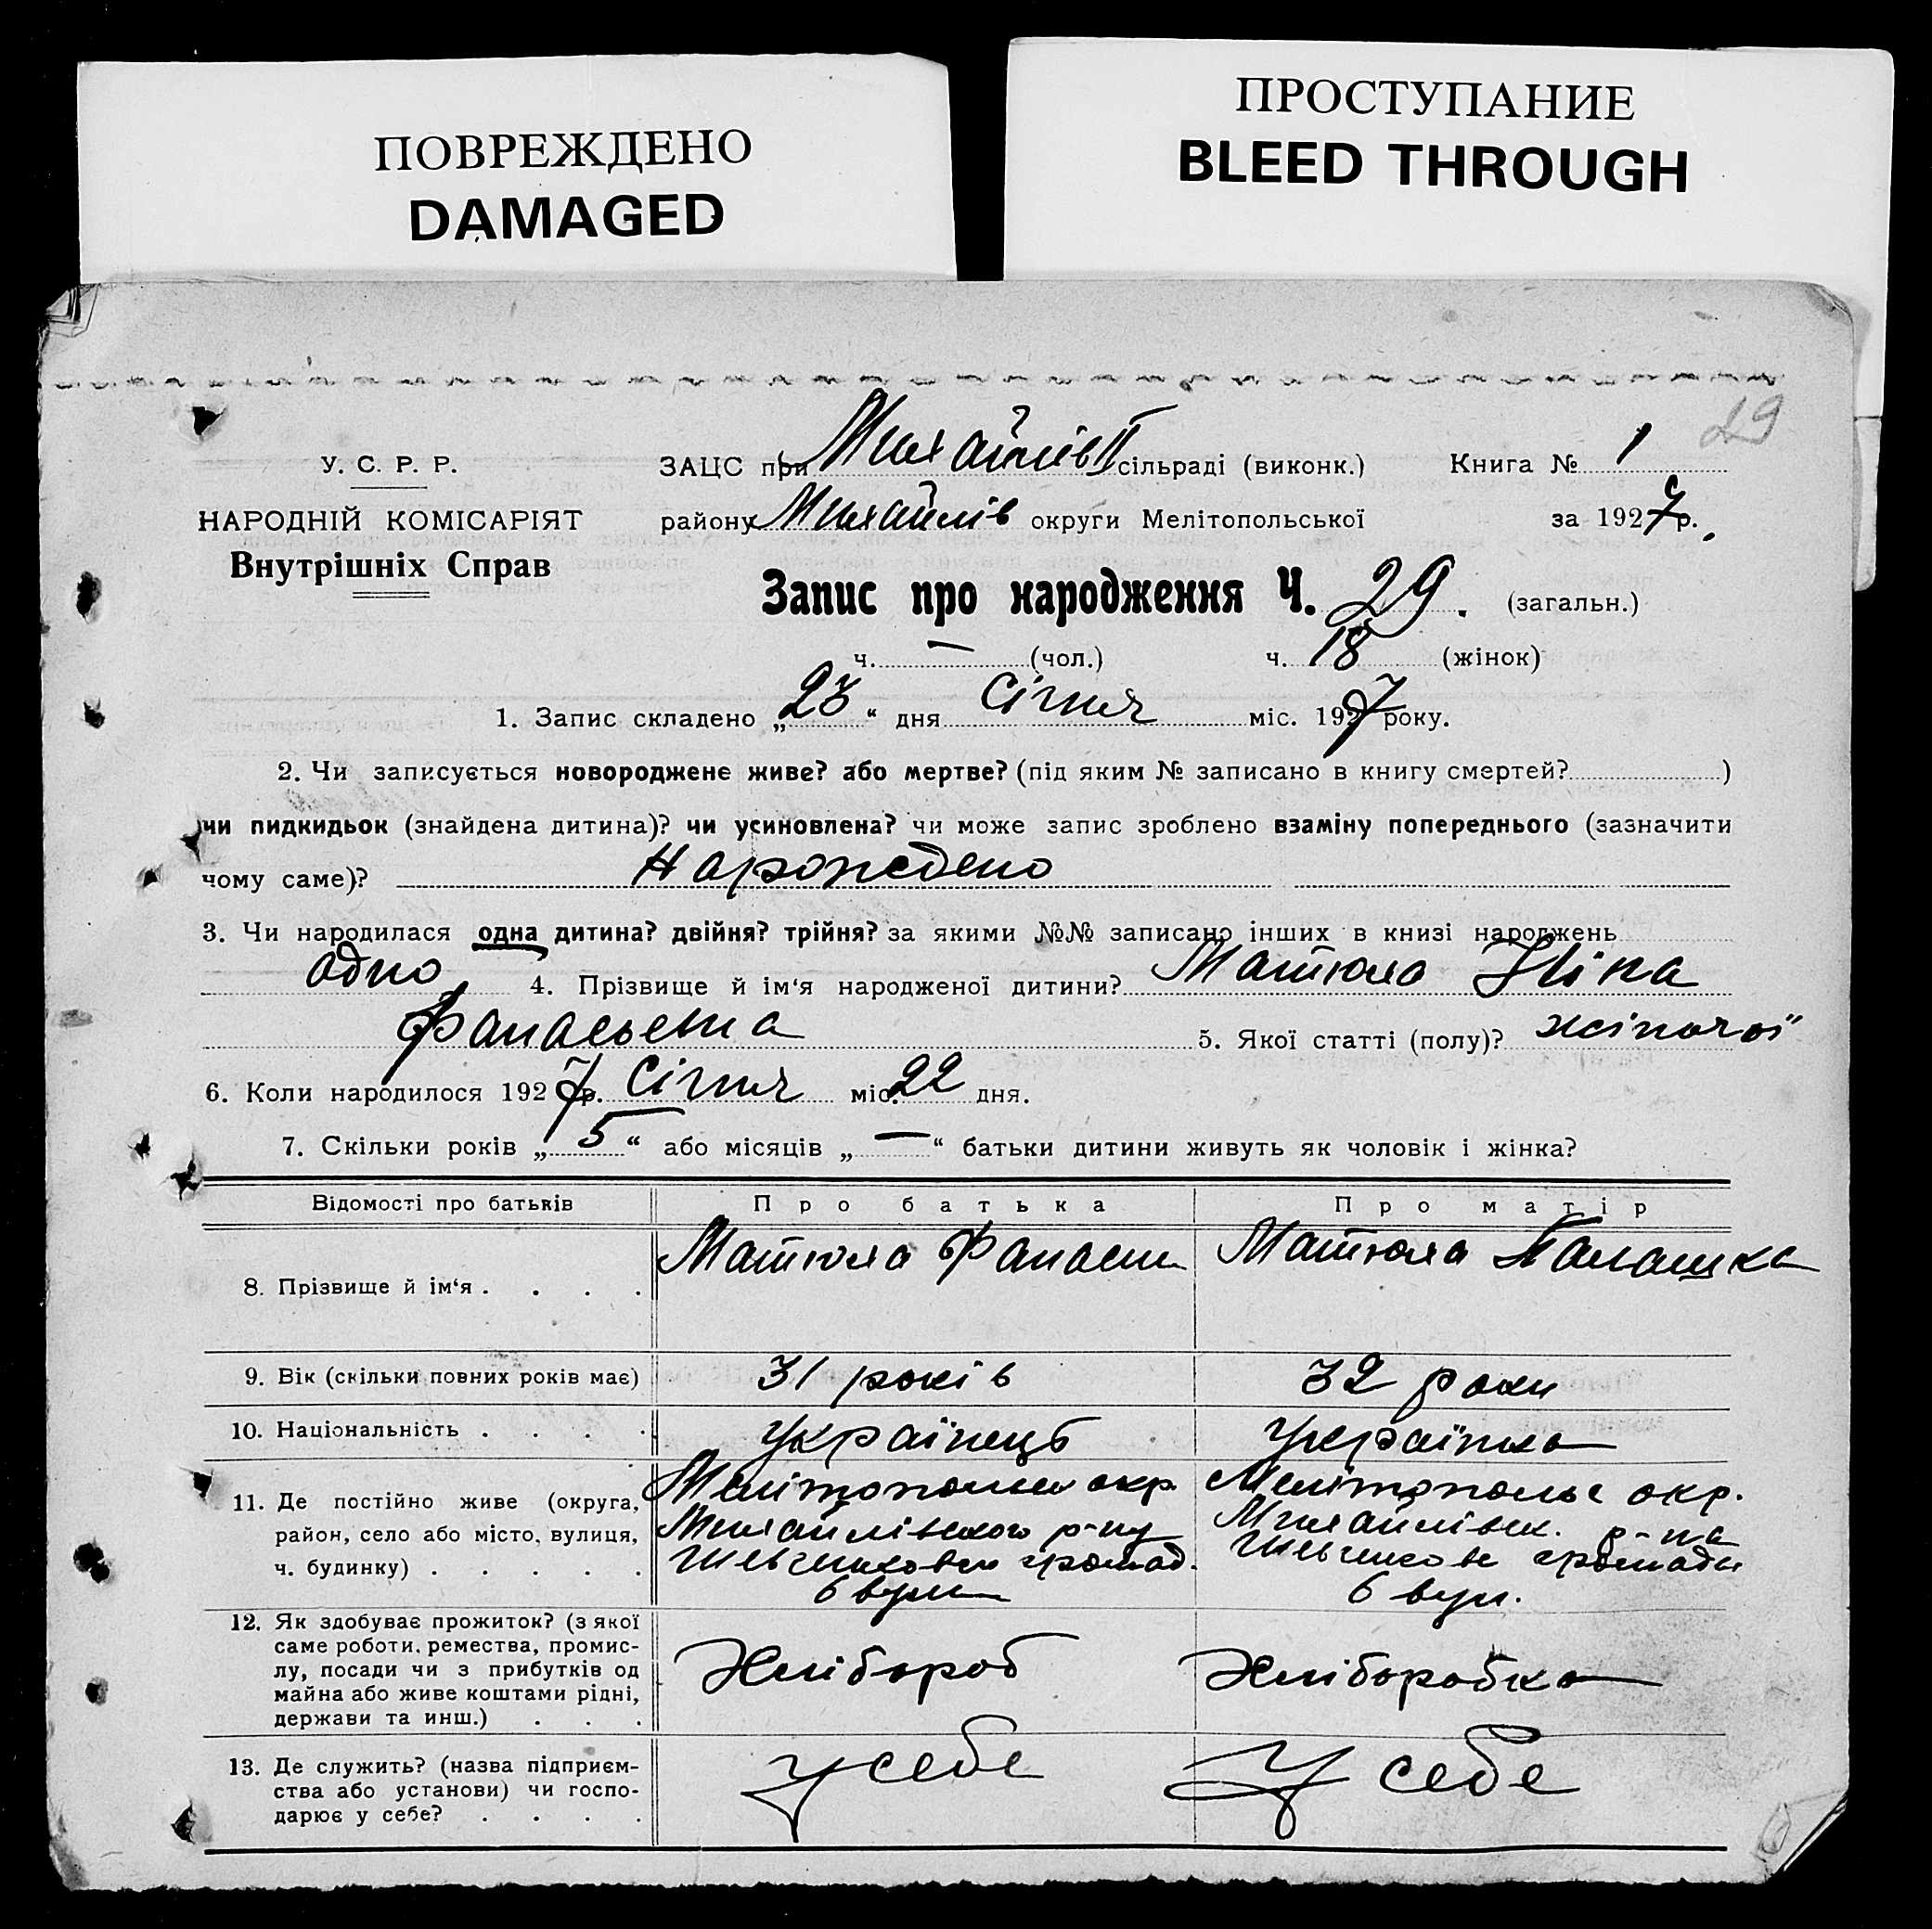 ПОВРЕЖДЕНО
DAMAGED
ПРОСТУПАНИЕ
BLEED THROUGH
29
У. С. Р. Р.
НАРОДНІЙ КОМІСАРІЯТ
Внутрішніх Справ
ЗАЦС при Михайлів II сільраді (виконк.) Книга № 1
району Михайлів округи Мелітопольської за 1927 р.
Запис про народження Ч. 29. (загальн.)
ч. — (чол.) ч. 18 (жінок)
1. Запис складено „23“ дня Січня міс. 1927 року.
2. Чи записується новороджене живе? або мертве? (під яким № записано в книгу смертей? )
чи пидкидьок (знайдена дитина)? чи усиновлена? чи може запис зроблено взаміну попереднього (зазначити
чому саме)? Нарождено
3. Чи народилася одна дитина? двійня? трійня? за якими №№ записано інших в книзі народжень
одно 4. Прізвище й ім‘я народженої дитини? Матюха Ніна
Фанасьевна 5. Якої статті (полу)? жіночої
6. Коли народилося 1927 р. Січня міс. 22 дня.
7. Скільки років „5“ або місяців „—“ батьки дитини живуть як чоловік і жінка?
Відомості про батьків Про батька Про матір
8. Прізвище й ім‘я . . . . Матюха Фанасий Матюха Палашка
9. Вік (скільки повних років має) 31 років 32 роки
10. Національність . . . . Українець Українка
11. Де постійно живе (округа, Мелітопольс окр. Мелітопольс окр.
район, село або місто, вулиця, Михайлівского р-ну Михайлівськ. р-на
ч. будинку) . . . . . Шевченковск громад. Шевченковс громади
6 вул 6 вул.
12. Як здобуває прожиток? (з якої
саме роботи, ремества, промис-
лу, посади чи з прибутків од Хлібороб Хліборобка
майна або живе коштами рідні,
держави та инш.) . . .
13. Де служить? (назва підприєм- у себе У себе
ства або установи) чи госпо-
дарює у себе? . . . .